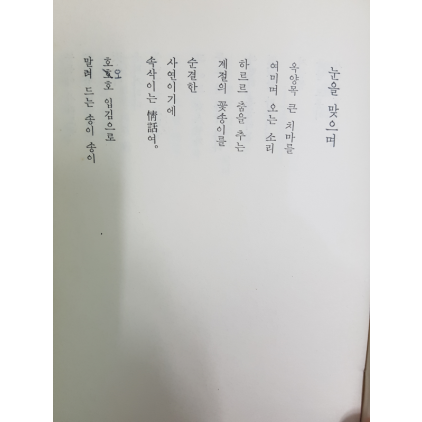 눈을 맞으며
옥양목 큰 치마를
여미며 오는 소리
하르르 춤을 추는
계절의 꽃송이를
순결한
사연이기에
속삭이는 情話여。
호호오 입김으로
말려 드는 송이 송이